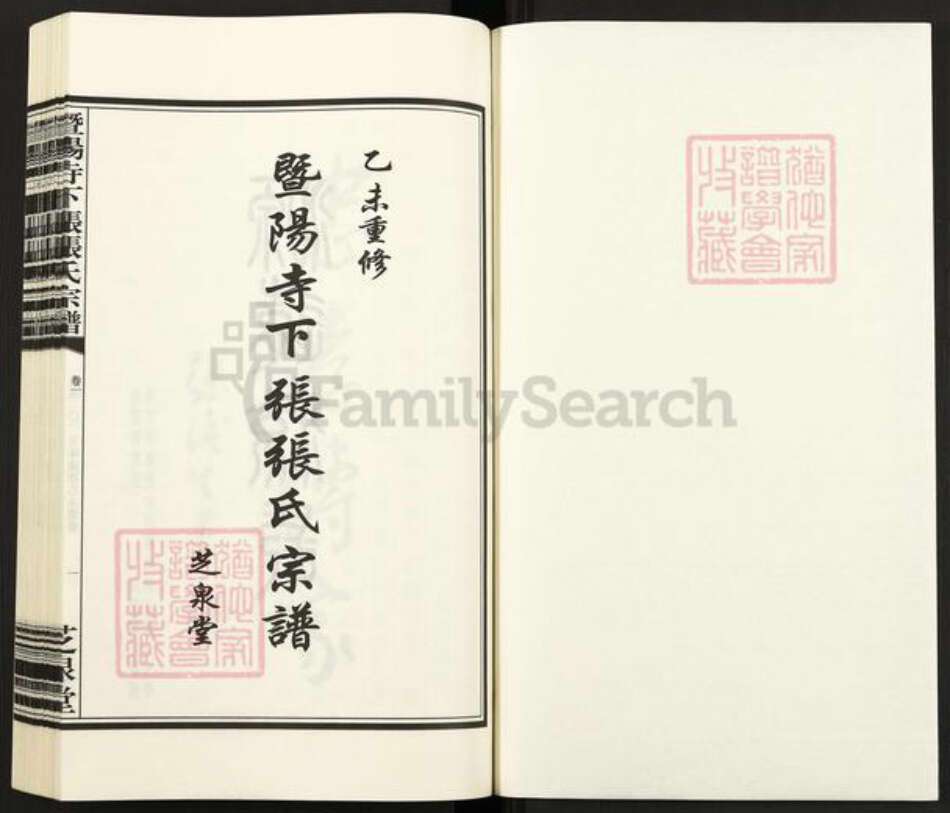 乙未重修
暨陽寺下張張氏宗譜
芝泉堂
暨陽寺下張張氏宗譜
卷一
一
芝泉堂
猶他家譜學會收藏
猶他家譜學會收藏
FamilySearch